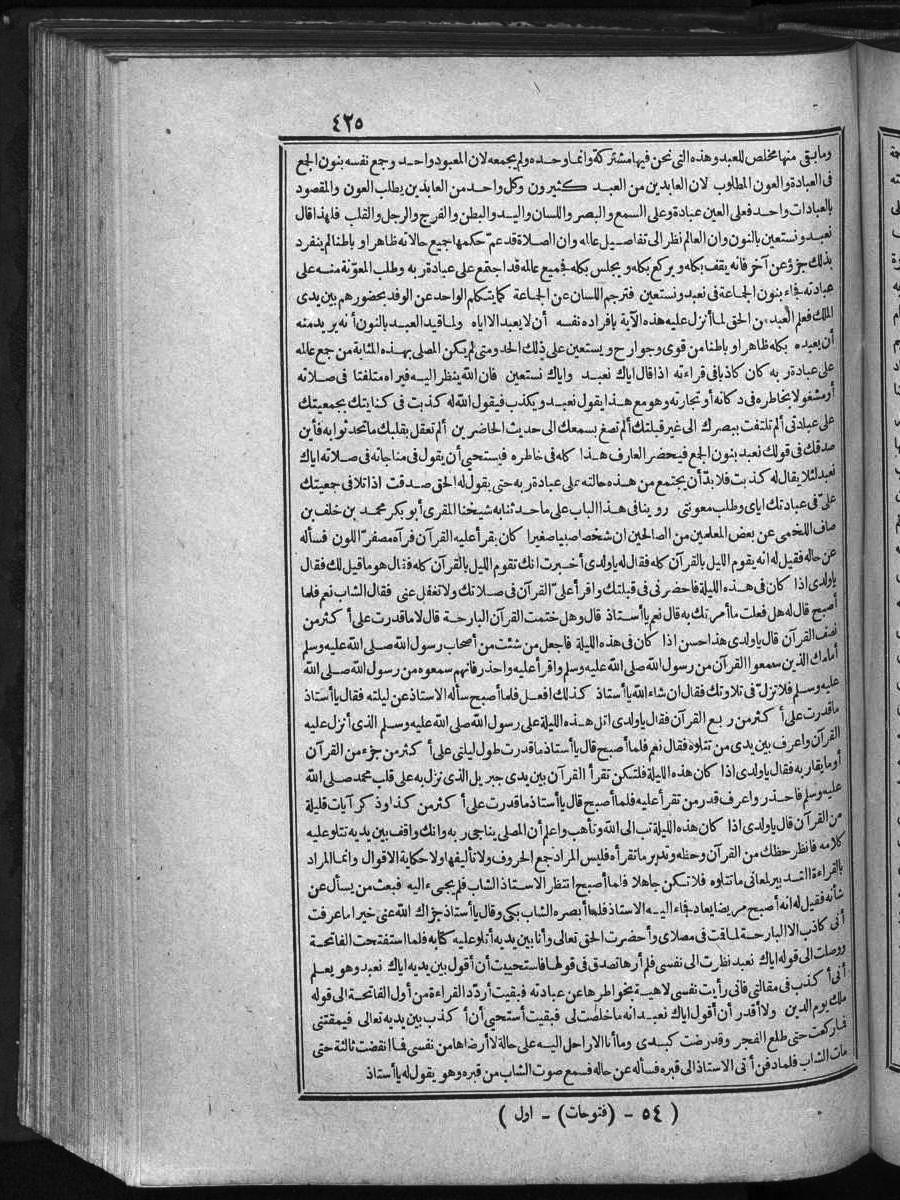 ٤٢٥
وما بقى منها مخلص للعبد وهذه التى نحن فيها مشتركة وانما وحده ولم يجمعه لان المعبود واحد وجمع نفسه بنون الجمع
فى العبادة والعون المطلوب لان العابدين من العبد كثيرون وكل واحد من العابدين يطلب العون والمقصود
بالعبادات واحد فعلى العين عبادة وعلى السمع والبصر واللسان واليد والبطن والفرج والرجل والقلب فلهذا قال
نعبد ونستعين بالنون وان العالم نظر الى تفاصيل عالمه وان الصلاة قد عمّ حكمها جميع حالاته ظاهرا وباطنا لم ينفرد
بذلك جزؤ عن آخر فانه يقف بكله ويركع بكله ويجلس بكله فجميع عالمه قد اجتمع على عبادة ربه وطلب المعونة منه على
عبادته فجاء بنون الجماعة فى نعبد ونستعين فترجم اللسان عن الجماعة كما يتكلم الواحد عن الوفد بحضورهم بين يدى
الملك فعلم العبد من الحق لما أنزل عليه هذه الآية بافراده نفسه أن لا يعبد الا اياه ولما قيد العبد بالنون أنه يريد منه
أن يعبده بكله ظاهرا وباطنا من قوى وجوارح ويستعين على ذلك الحد ومتى لم يكن المصلى بهذه المثابة من جمع عالمه
على عبادة ربه كان كاذبا فى قراءته اذا قال اياك نعبد واياك نستعين فان الله ينظر اليه فيراه متلفتا فى صلاته
أو مشغولا بخاطره فى دكانه أو تجارته وهو مع هذا يقول نعبد ويكذب فيقول الله له كذبت فى كنايتك بجمعيتك
على عبادتى ألم تلتفت ببصرك الى غير قبلتك ألم تصغ بسمعك الى حديث الحاضرين ألم تعقل بقلبك ما تحدثوا به فأين
صدقك فى قولك نعبد بنون الجمع فيحضر العارف هذا كله فى خاطره فيستحيى أن يقول فى مناجاته فى صلاته اياك
نعبد لئلا يقال له كذبت فلا بدّ أن يجتمع من هذه حالته على عبادة ربه حتى يقول له الحق صدقت اذا تلا فى جمعيتك
علىّ فى عبادتك اياى وطلب معونتى روينا فى هذا الباب على ما حدثنا به شيخنا المقرى أبو بكر محمد بن خلف بن
صاف اللخمى عن بعض المعلمين من الصالحين ان شخصا صبيا صغيرا كان يقرأ عليه القرآن فرآه مصفرّ اللون فسأله
عن حاله فقيل له انه يقوم الليل بالقرآن كله فقال له يا ولدى أخبرت انك تقوم الليل بالقرآن كله فقال هو ما قيل لك فقال
يا ولدى اذا كان فى هذه الليلة فاحضرنى فى قبلتك واقرأ علىّ القرآن فى صلاتك ولا تغفل عنى فقال الشاب نعم فلما
أصبح قال له هل فعلت ما أمرتك به قال نعم يا أستاذ قال وهل ختمت القرآن البارحة قال لا ما قدرت على أكثر من
نصف القرآن قال يا ولدى هذا حسن اذا كان فى هذه الليلة فاجعل من شئت من أصحاب رسول الله صلى الله عليه وسلم
أمامك الذين سمعوا القرآن من رسول الله صلى الله عليه وسلم واقرأ عليه واحذر فانهم سمعوه من رسول الله صلى الله
عليه وسلم فلا تزلّ فى تلاوتك فقال ان شاء الله يا أستاذ كذلك افعل فلما أصبح سأله الاستاذ عن ليلته فقال يا أستاذ
ما قدرت على أكثر من ربع القرآن فقال يا ولدى اتل هذه الليلة على رسول الله صلى الله عليه وسلم الذى أنزل عليه
القرآن واعرف بين يدى من تتلوه فقال نعم فلما أصبح قال يا أستاذ ما قدرت طول ليلتى على أكثر من جزء من القرآن
أو ما يقاربه فقال يا ولدى اذا كان هذه الليلة فلتكن تقرأ القرآن بين يدى جبريل الذى نزل به على قلب محمد صلى الله
عليه وسلم فاحذر واعرف قدر من تقرأ عليه فلما أصبح قال يا أستاذ ما قدرت على أكثر من كذا وذكر آيات قليلة
من القرآن قال يا ولدى اذا كان هذه الليلة تب الى الله وتأهب واعلم أن المصلى يناجى ربه وانك واقف بين يديه تتلو عليه
كلامه فانظر حظك من القرآن وحظه وتدبر ما تقرأه فليس المراد جمع الحروف ولا تأليفها ولا حكاية الاقوال وانما المراد
بالقراءة التدبير لمعانى ما تتلوه فلا تكن جاهلا فلما أصبح انتظر الاستاذ الشاب فلم يجىء اليه فبعث من يسأل عن
شأنه فقيل له انه أصبح مريضا يعاد فجاء اليه الاستاذ فلما أبصره الشاب بكى وقال يا أستاذ جزاك الله عنى خيرا ما عرفت
أنى كاذب الا البارحة لما قت فى مصلاى وأحضرت الحق تعالى وأنا بين يديه أتلو عليه كتابه فلما استفتحت الفاتحة
ووصلت الى قوله اياك نعبد نظرت الى نفسى فلم أرها تصدق فى قولها فاستحييت أن أقول بين يديه اياك نعبد وهو يعلم
أنى أكذب فى مقالتى فانى رأيت نفسى لاهية بخواطرها عن عبادته فبقيت أردّد القراءة من أول الفاتحة الى قوله
ملك يوم الدين ولا أقدر أن أقول اياك نعبد انه ما خلصت لى فبقيت أستحى أن أكذب بين يديه تعالى فيمقتنى
فما ركعت حتى طلع الفجر وقد رضت كبدى وما أنا الا راحل اليه على حالة لا أرضاها من نفسى فما انقضت ثالثة حتى
مات الشاب فلما دفن أتى الاستاذ الى قبره فسأله عن حاله فسمع صوت الشاب من قبره وهو يقول له يا أستاذ
( ٥٤ - (فتوحات) - اول )